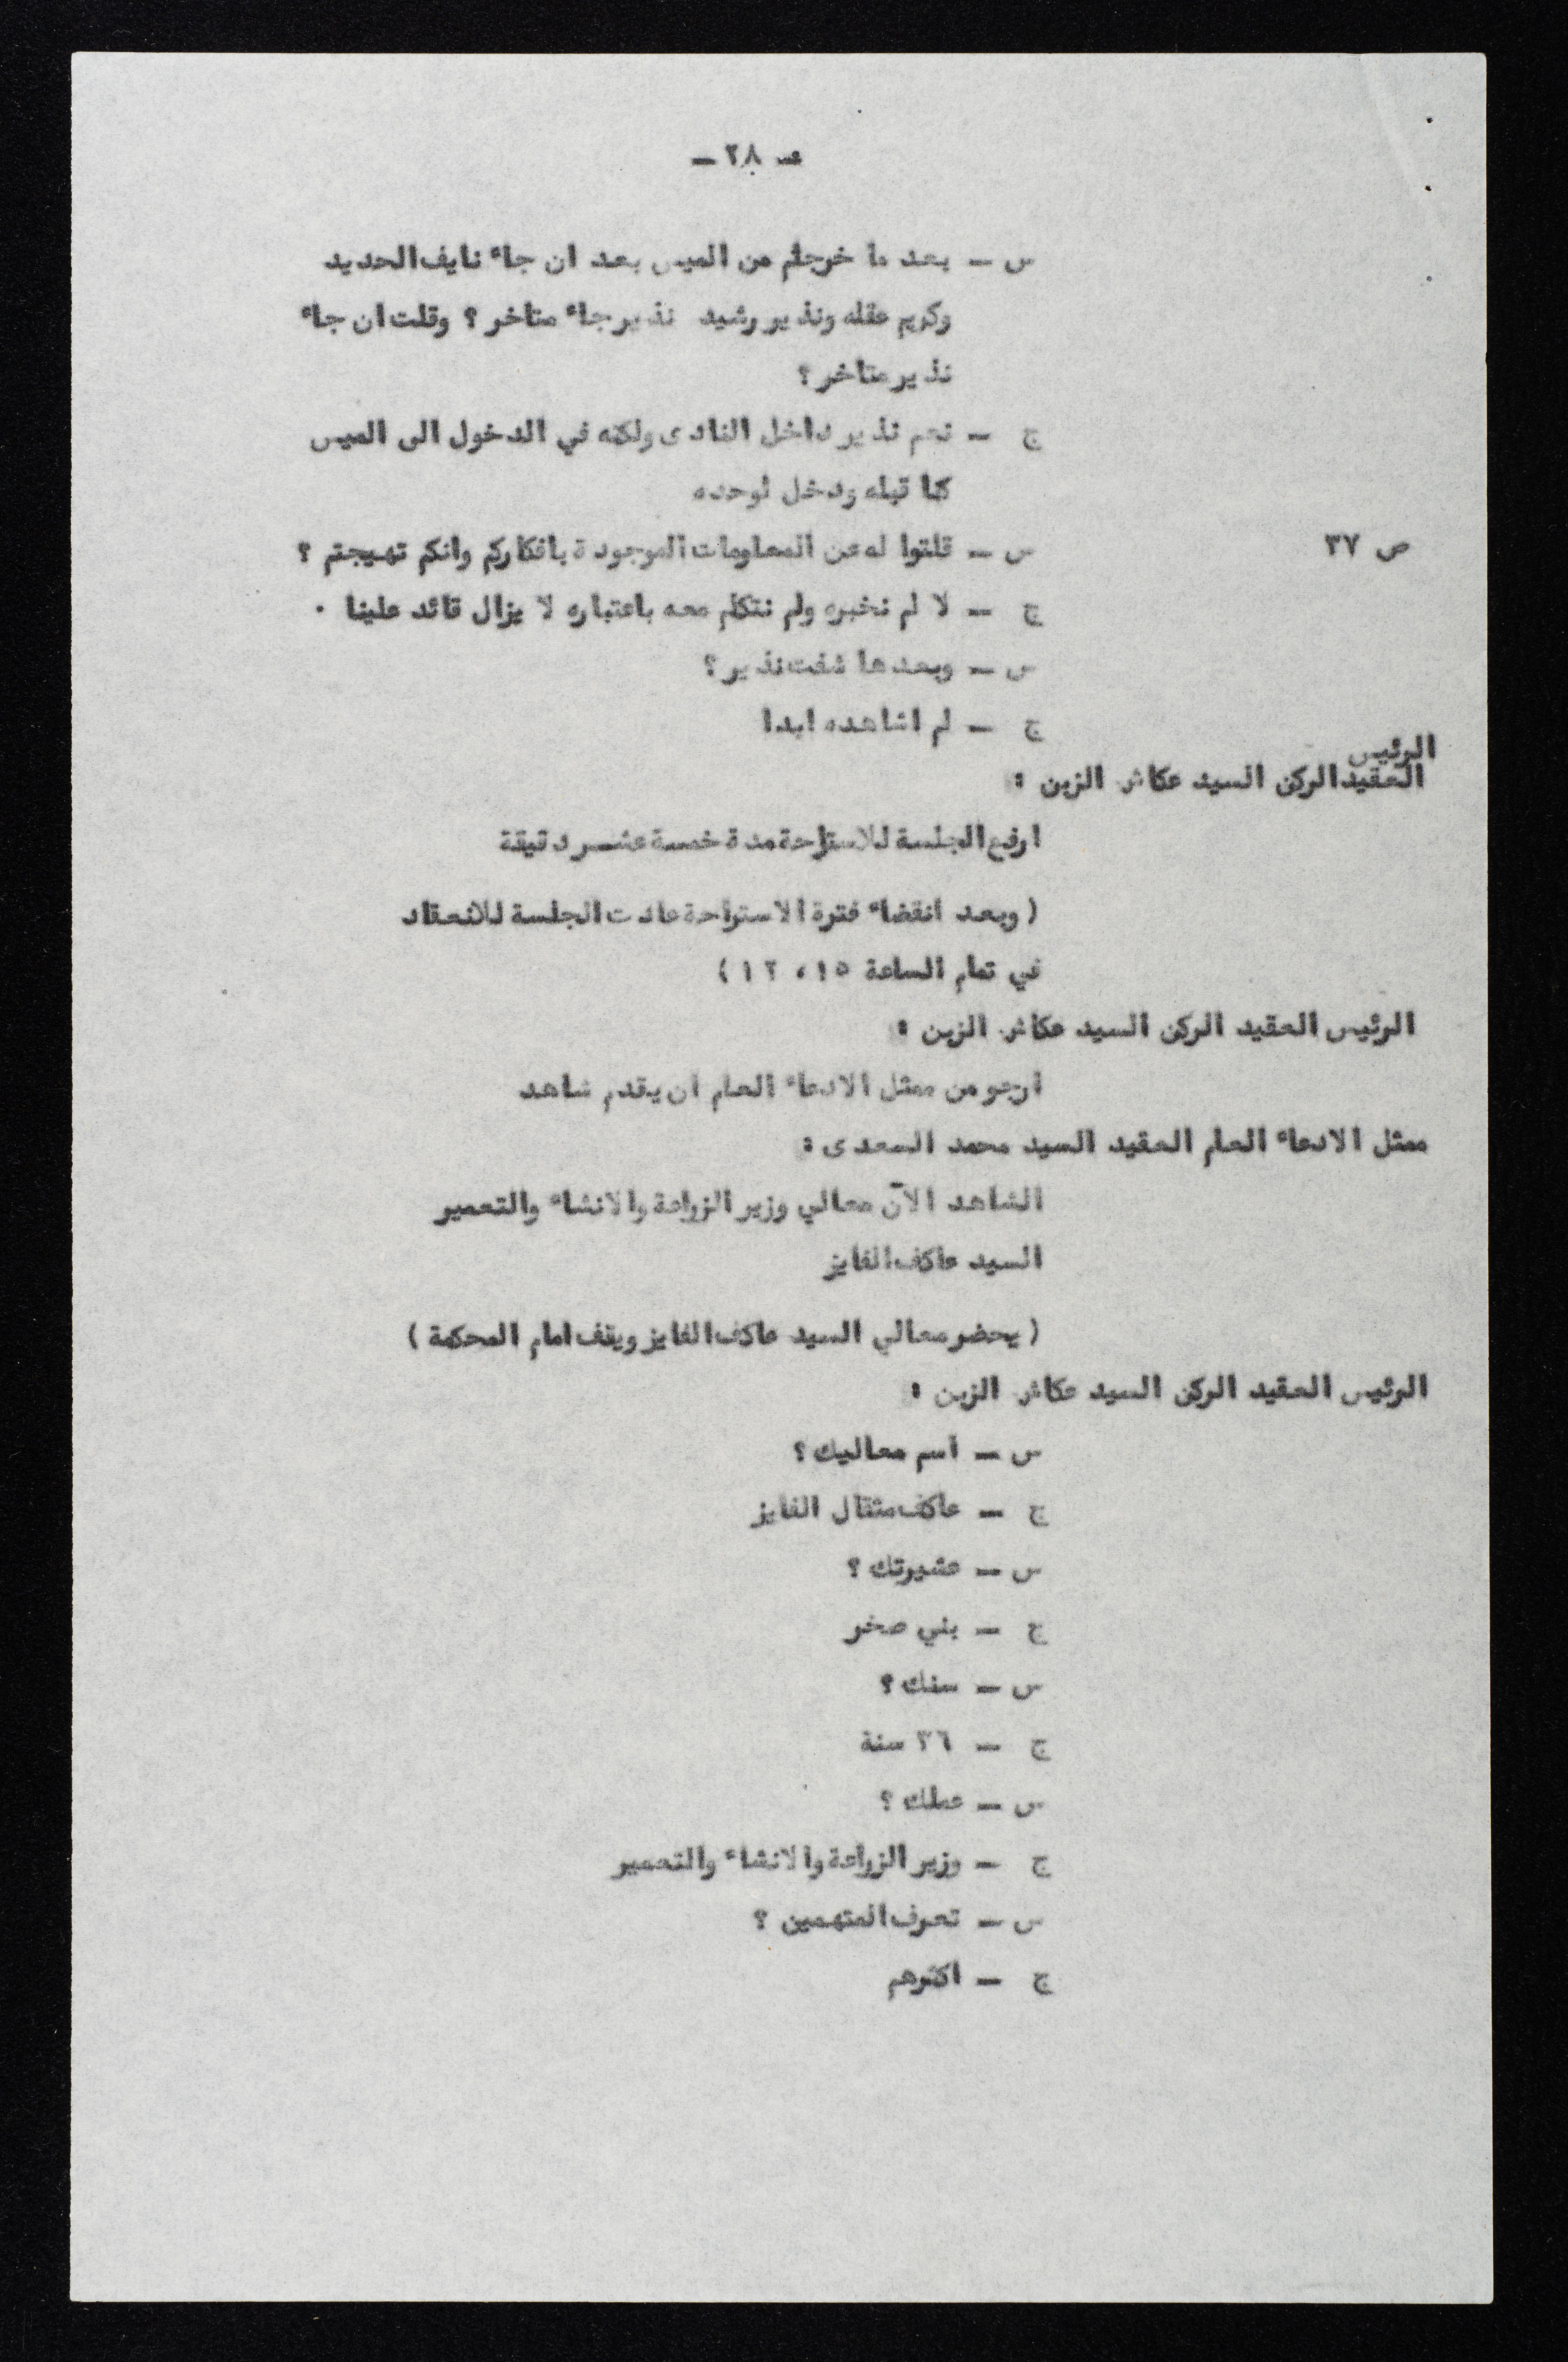 ـ ٢٨ ـ
س ـ بعد ما خرجتم من الميس بعد ان جاء نايف الحديد
وكريم عقله ونذير رشيد نذير جاء متاخر ؟ وقلت ان جاء
نذير متاخر ؟
ج ـ نعم نذير داخل النادى ولكنه في الدخول الى الميس
كنا قبله ودخل لوحده
ص ٣٧
س ـ قلتوا له عن المعلومات الموجودة بافكاركم وانكم تهيجتم ؟
ج ـ لا لم نخبره ولم نتكلم معه باعتباره لا يزال قائد علينا .
س ـ وبعدها شفت نذير ؟
ج ـ لم اشاهده ابدا
الرئيس
العقيد الركن السيد عكاش الزبن :
ارفع الجلسة للاستراحة مدة خمسة عشر دقيقة
( وبعد انقضاء فترة الاستراحة عادت الجلسة للانعقاد
في تمام الساعة ١٥ ، ١٢ )
الرئيس العقيد الركن السيد عكاش الزبن :
ارجو من ممثل الادعاء العام ان يقدم شاهد
ممثل الادعاء العام العقيد السيد محمد السعدى :
الشاهد الآن معالي وزير الزراعة والانشاء والتعمير
السيد عاكف الفايز
( يحضر معالي السيد عاكف الفايز ويقف امام المحكمة )
الرئيس العقيد الركن السيد عكاش الزبن :
س ـ اسم معاليك ؟
ج ـ عاكف مثقال الفايز
س ـ عشيرتك ؟
ج ـ بني صخر
س ـ سنك ؟
ج ـ ٣٦ سنة
س ـ عملك ؟
ج ـ وزير الزراعة والانشاء والتعمير
س ـ تعرف المتهمين ؟
ج ـ اكثرهم